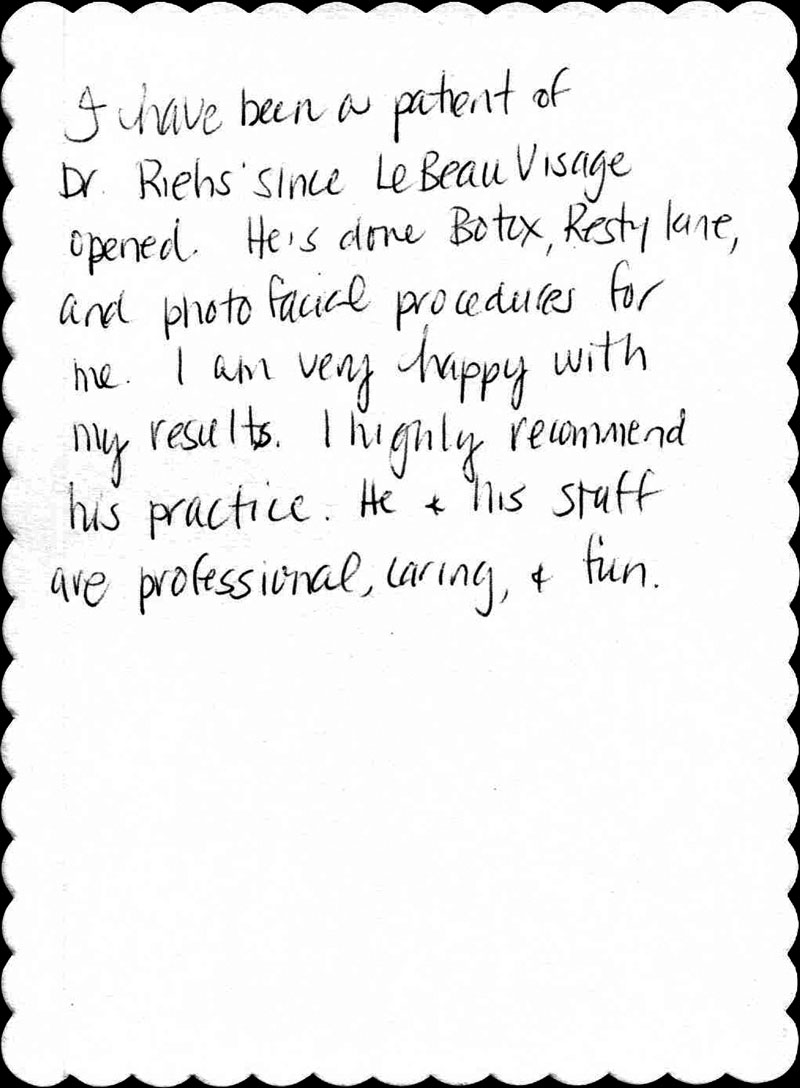 I have been a patient of
Dr. Riehs' since Le Beau Visage
opened. He's done Botox, Restylane,
and photo facial procedures for
me. I am very happy with
my results. I highly recommend
his practice. He & his staff
are professional, caring, & fun.